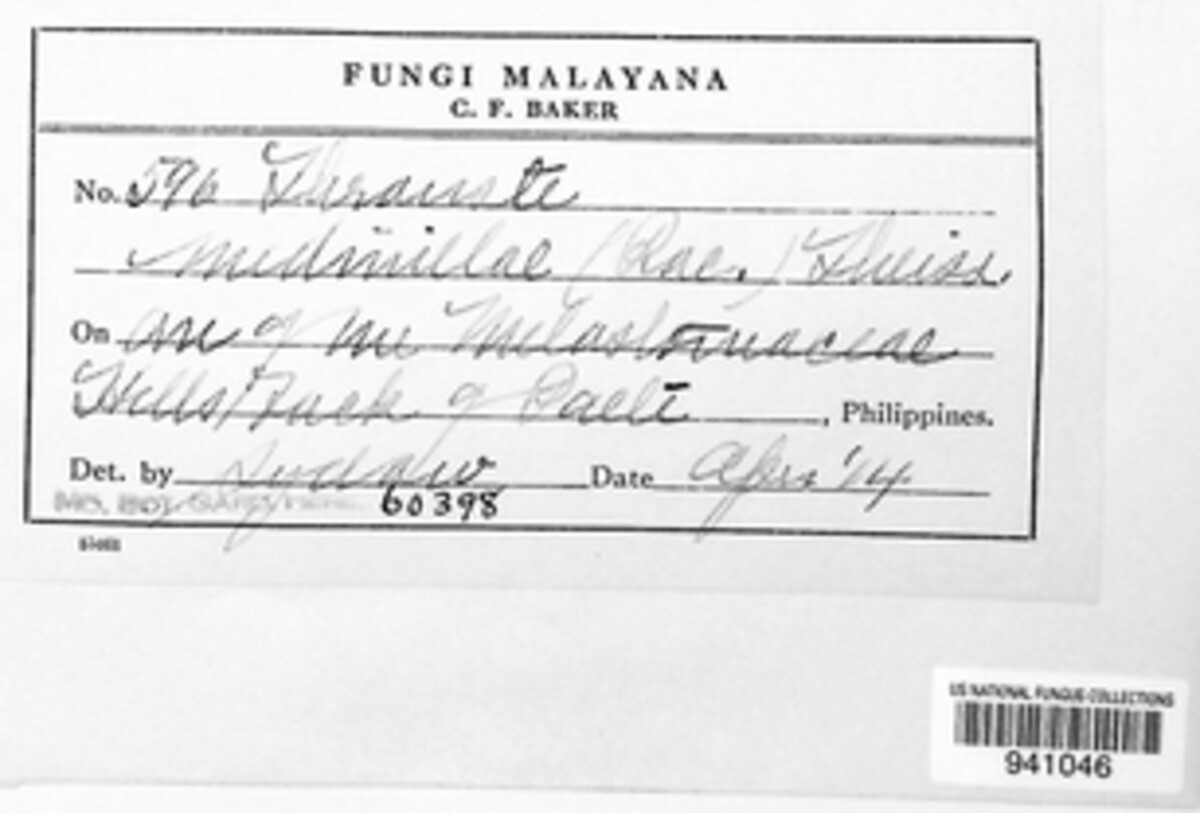 FUNGI MALAYANA
C. F. BAKER
No. 596 Thrauste
Medinillae (Rac.) Theiss.
On one of the Melastomaceae
Hills back of Paete, Philippines.
Det. by Sydow Date Apr '14
MO. BOT. GARD. HERB. 60398
US NATIONAL FUNGUS COLLECTIONS
941046